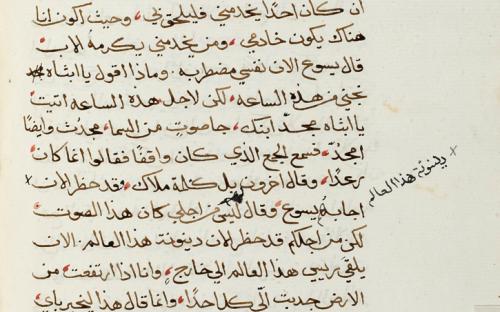 ان كان احدًا يخدمني فليلحق بي، وحيث أكون انا
هناك يكون خادمي، ومن يخدمني يكرمه الاب
قال يسوع الان نفسي مضطربه. وماذا اقول يا ابتاه
نجني من هذه الساعه، لكن لاجل هذه الساعه اتيت
يا ابتاه مجدّ ابنك، جا صوت من السما، مجدت وايضًا
امجدّ، فسمع الجمع الذي كان واقفًا فقالوا انما كان
رعدًا، وقال اخرون بل كلمة ملاك، وقد حظر الان
اجابه يسوع، وقال ليس من اجلي كان هذا الصوت
لكن من اجلكم قد حظر الان دينونة هذا العالم. الان
يلقى ريس هذا العالم الي خارج، وانا اذا ارتفعت، من
الارض جدبت اليّ كل احدًا، وانما قال هذا ليخبر باي
دينونة هذا العالم